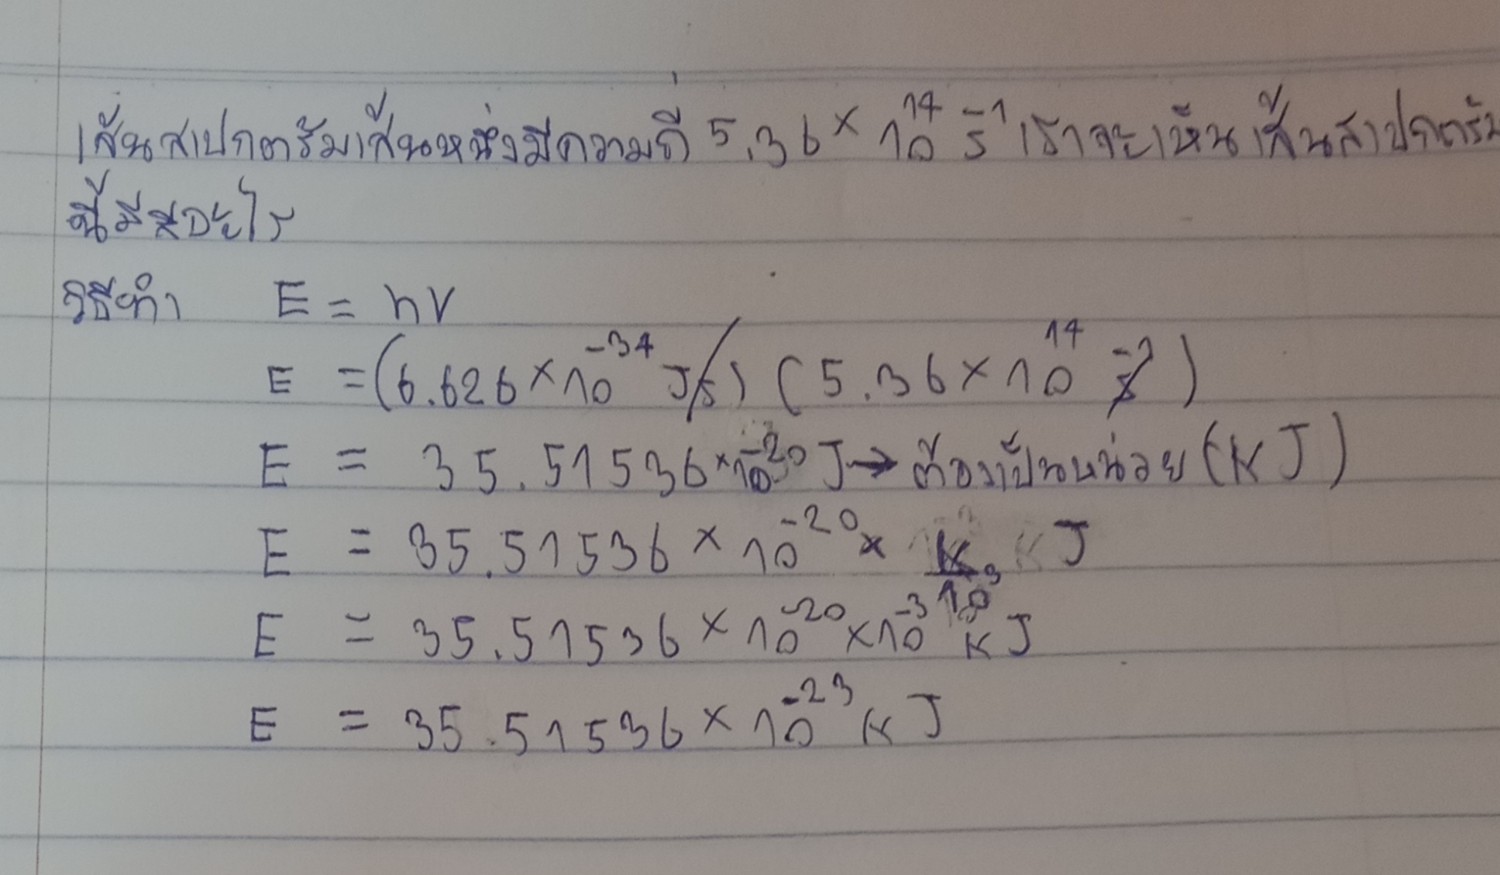 เส้นสเปกตรัมเส้นหนึ่งมีความถี่ 5.36 × 10¹⁴ s⁻¹ เราจะเห็นเส้นสเปกตรัม
นี้มีสีอะไร
วิธีทำ E = hν
E = (6.626 × 10⁻³⁴ Js) (5.36 × 10¹⁴ s⁻¹)
E = 35.51536 × 10⁻²⁰ J → ต้องเป็นหน่วย (KJ)
E = 35.51536 × 10⁻²⁰ × K/10³ J
E = 35.51536 × 10⁻²⁰ × 10⁻³ KJ
E = 35.51536 × 10⁻²³ KJ